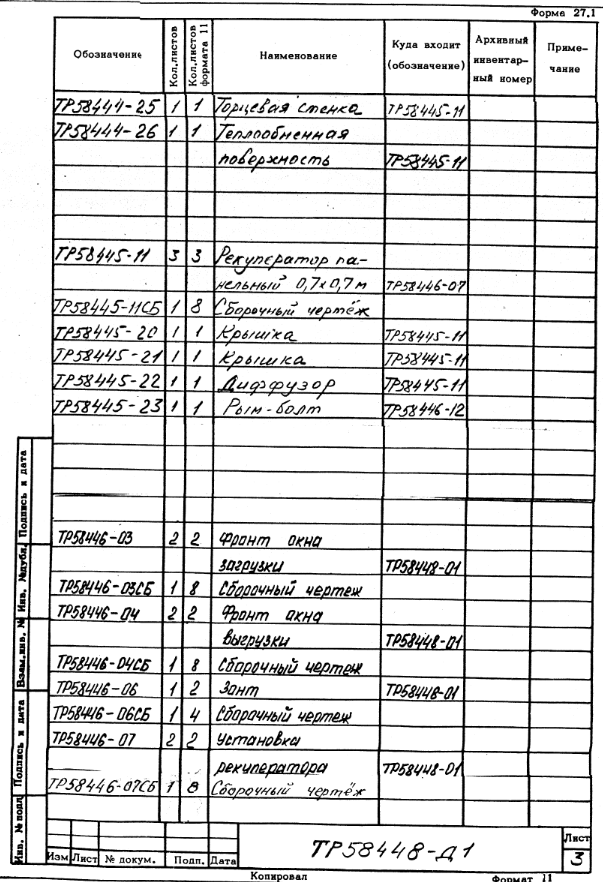 Форма 27.1
Обозначение Кол.листов Кол.листов формата 11 Наименование Куда входит (обозначение) Архивный инвентар- ный номер Приме- чание
ТР58444-25 1 1 Торцевая стенка ТР58445-11
ТР58444-26 1 1 Теплообменная
поверхность ТР58445-11
ТР58445-11 3 3 Рекуператор па-
нельный 0,7х0,7м ТР58446-07
ТР58445-11СБ 1 8 Сборочный чертёж
ТР58445-20 1 1 Крышка ТР58445-11
ТР58445-21 1 1 Крышка ТР58445-11
ТР58445-22 1 1 Диффузор ТР58445-11
ТР58445-23 1 1 Рым-болт ТР58446-12
ТР58446-03 2 2 Фронт окна
загрузки ТР58448-01
ТР58446-03СБ 1 8 Сборочный чертеж
ТР58446-04 2 2 Фронт окна
выгрузки ТР58448-01
ТР58446-04СБ 1 8 Сборочный чертеж
ТР58446-06 1 2 Зонт ТР58448-01
ТР58446-06СБ 1 4 Сборочный чертеж
ТР58446-07 2 2 Установка
рекуператора ТР58448-01
ТР58446-07СБ 1 8 Сборочный чертёж
Инв. № подл Подпись и дата Взам.инв. № Инв. №дубл. Подпись и дата
Изм Лист № докум. Подп. Дата
ТР58448-Д1
Лист
3
Копировал Формат 11